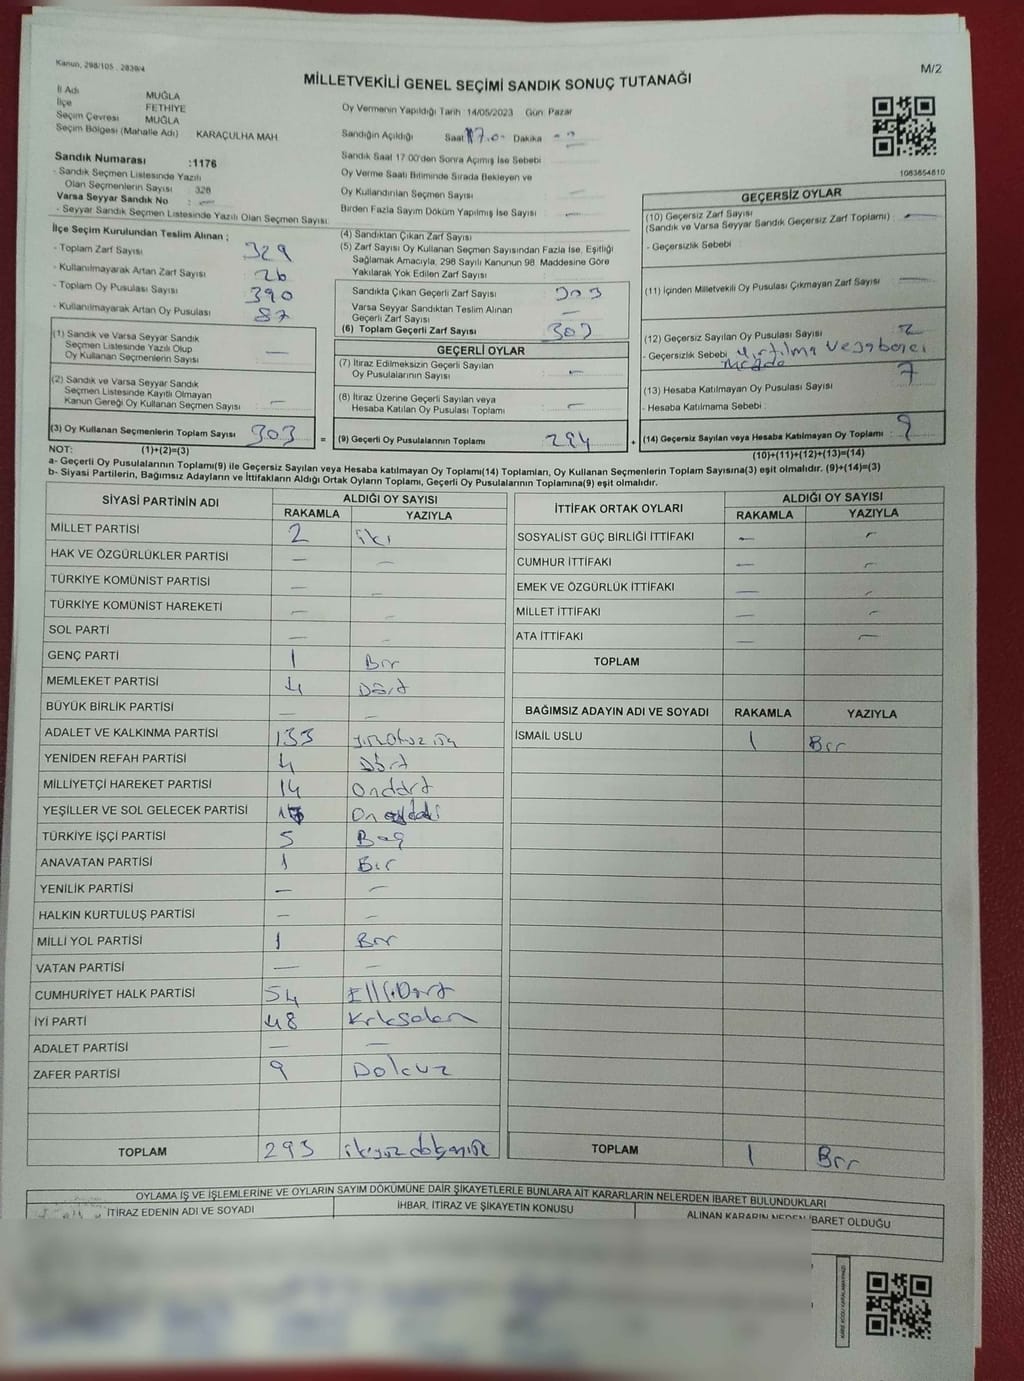 Kanun, 298/105 . 2839/4
M/2
MİLLETVEKİLİ GENEL SEÇİMİ SANDIK SONUÇ TUTANAĞI
İl Adı MUĞLA
İlçe FETHİYE
Seçim Çevresi MUĞLA
Seçim Bölgesi (Mahalle Adı) KARAÇULHA MAH
Sandık Numarası :1176
- Sandık Seçmen Listesinde Yazılı
Olan Seçmenlerin Sayısı : 328
Varsa Seyyar Sandık No : —
- Seyyar Sandık Seçmen Listesinde Yazılı Olan Seçmen Sayısı:
Oy Vermenin Yapıldığı Tarih 14/05/2023 Gün: Pazar
Sandığın Açıldığı Saat 17.0- Dakika
Sandık Saat 17:00'den Sonra Açımış İse Sebebi
Oy Verme Saati Bitiminde Sırada Bekleyen ve
Oy Kullandırılan Seçmen Sayısı —
Birden Fazla Sayım Döküm Yapılmış İse Sayısı —
1083654810
İlçe Seçim Kurulundan Teslim Alınan ;
- Toplam Zarf Sayısı 329
- Kullanılmayarak Artan Zarf Sayısı 26
- Toplam Oy Pusulası Sayısı 390
- Kullanılmayarak Artan Oy Pusulası 87
(1) Sandık ve Varsa Seyyar Sandık
Seçmen Listesinde Yazılı Olup
Oy Kullanan Seçmenlerin Sayısı —
(2) Sandık ve Varsa Seyyar Sandık
Seçmen Listesinde Kayıtlı Olmayan
Kanun Gereği Oy Kullanan Seçmen Sayısı —
(3) Oy Kullanan Seçmenlerin Toplam Sayısı 303 =
(1)+(2)=(3)
(4) Sandıktan Çıkan Zarf Sayısı
(5) Zarf Sayısı Oy Kullanan Seçmen Sayısından Fazla İse, Eşitliği
Sağlamak Amacıyla, 298 Sayılı Kanunun 98. Maddesine Göre
Yakılarak Yok Edilen Zarf Sayısı —
Sandıkta Çıkan Geçerli Zarf Sayısı 303
Varsa Seyyar Sandıktan Teslim Alınan
Geçerli Zarf Sayısı —
(6) Toplam Geçerli Zarf Sayısı 303
GEÇERLİ OYLAR
(7) İtiraz Edilmeksizin Geçerli Sayılan
Oy Pusulalarının Sayısı —
(8) İtiraz Üzerine Geçerli Sayılan veya
Hesaba Katılan Oy Pusulası Toplamı —
(9) Geçerli Oy Pusulalarının Toplamı 294 +
GEÇERSİZ OYLAR
(10) Geçersiz Zarf Sayısı —
(Sandık ve Varsa Seyyar Sandık Geçersiz Zarf Toplamı)
- Geçersizlik Sebebi
(11) İçinden Milletvekili Oy Pusulası Çıkmayan Zarf Sayısı —
(12) Geçersiz Sayılan Oy Pusulası Sayısı 2
- Geçersizlik Sebebi
(13) Hesaba Katılmayan Oy Pusulası Sayısı 7
- Hesaba Katılmama Sebebi :
(14) Geçersiz Sayılan veya Hesaba Katılmayan Oy Toplamı : 9
(10)+(11)+(12)+(13)=(14)
NOT:
a- Geçerli Oy Pusulalarının Toplamı(9) ile Geçersiz Sayılan veya Hesaba katılmayan Oy Toplamı(14) Toplamları, Oy Kullanan Seçmenlerin Toplam Sayısına(3) eşit olmalıdır. (9)+(14)=(3)
b- Siyasi Partilerin, Bağımsız Adayların ve İttifakların Aldığı Ortak Oyların Toplamı, Geçerli Oy Pusulalarının Toplamına(9) eşit olmalıdır.
SİYASİ PARTİNİN ADI ALDIĞI OY SAYISI
RAKAMLA YAZIYLA
MİLLET PARTİSİ 2 iki
HAK VE ÖZGÜRLÜKLER PARTİSİ — —
TÜRKİYE KOMÜNİST PARTİSİ — —
TÜRKİYE KOMÜNİST HAREKETİ — —
SOL PARTİ — —
GENÇ PARTİ 1 Bir
MEMLEKET PARTİSİ 4 Dört
BÜYÜK BİRLİK PARTİSİ — —
ADALET VE KALKINMA PARTİSİ 133
YENİDEN REFAH PARTİSİ 4 Dört
MİLLİYETÇİ HAREKET PARTİSİ 14 Ondört
YEŞİLLER VE SOL GELECEK PARTİSİ
TÜRKİYE İŞÇİ PARTİSİ 5 Beş
ANAVATAN PARTİSİ 1 Bir
YENİLİK PARTİSİ — —
HALKIN KURTULUŞ PARTİSİ — —
MİLLİ YOL PARTİSİ 1 Bir
VATAN PARTİSİ — —
CUMHURİYET HALK PARTİSİ 54 Elli Dört
İYİ PARTİ 48 Kırksekiz
ADALET PARTİSİ — —
ZAFER PARTİSİ 9 Dokuz
TOPLAM 293
İTTİFAK ORTAK OYLARI ALDIĞI OY SAYISI
RAKAMLA YAZIYLA
SOSYALİST GÜÇ BİRLİĞİ İTTİFAKI — —
CUMHUR İTTİFAKI — —
EMEK VE ÖZGÜRLÜK İTTİFAKI — —
MİLLET İTTİFAKI — —
ATA İTTİFAKI — —
TOPLAM
BAĞIMSIZ ADAYIN ADI VE SOYADI RAKAMLA YAZIYLA
İSMAİL USLU 1 Bir
TOPLAM 1 Bir
OYLAMA İŞ VE İŞLEMLERİNE VE OYLARIN SAYIM DÖKÜMÜNE DAİR ŞİKAYETLERLE BUNLARA AİT KARARLARIN NELERDEN İBARET BULUNDUKLARI
İTİRAZ EDENİN ADI VE SOYADI İHBAR, İTİRAZ VE ŞİKAYETİN KONUSU ALINAN KARARIN NEDEN İBARET OLDUĞU